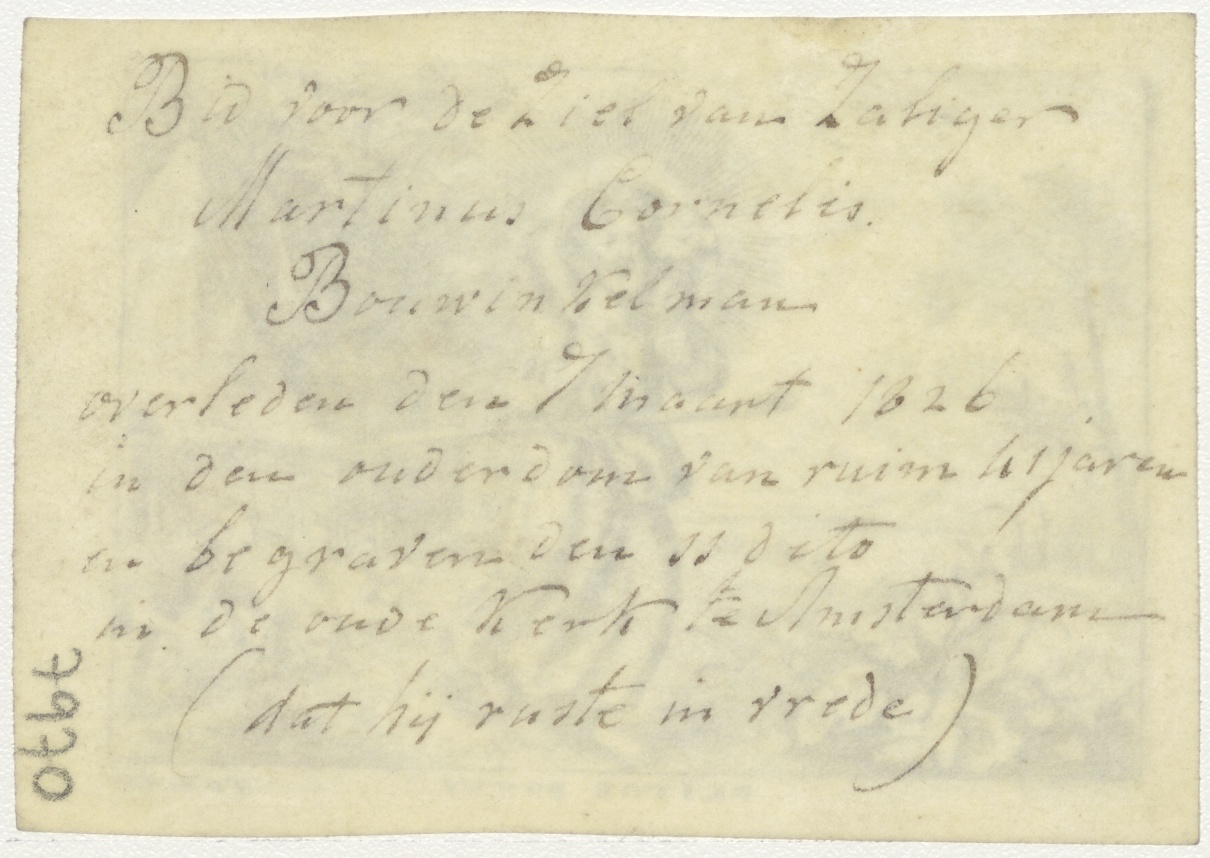 Bid voor de Ziel van Zaliger
Martinus Cornelis.
Bouwinkelman
overleden den 7 maart 1826
in den ouderdom van ruim 41 jaren
en begraven den 11 dito
in de oude Kerk te Amsterdam
(dat hij ruste in vrede)